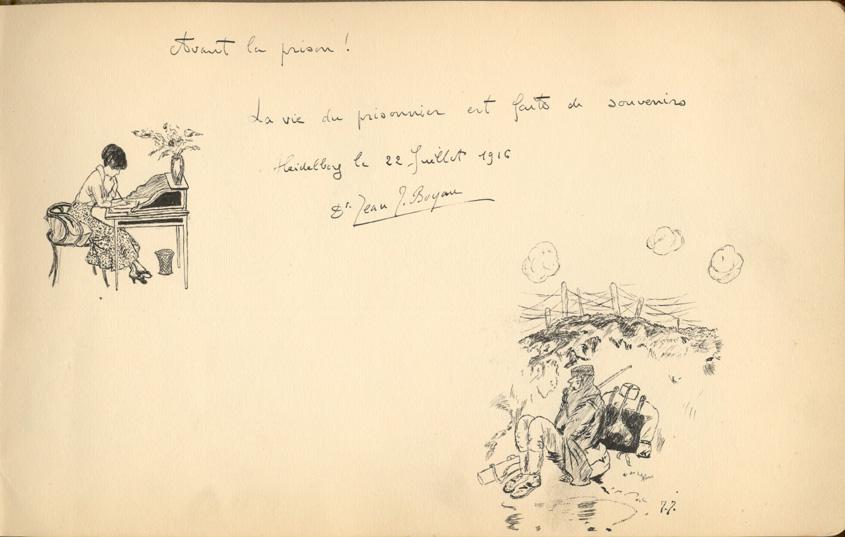 Avant la prison !
La vie du prisonnier est faite de souvenirs
Heidelberg le 22 Juillet 1916
Dr. Jean J. Boyau
J.J.